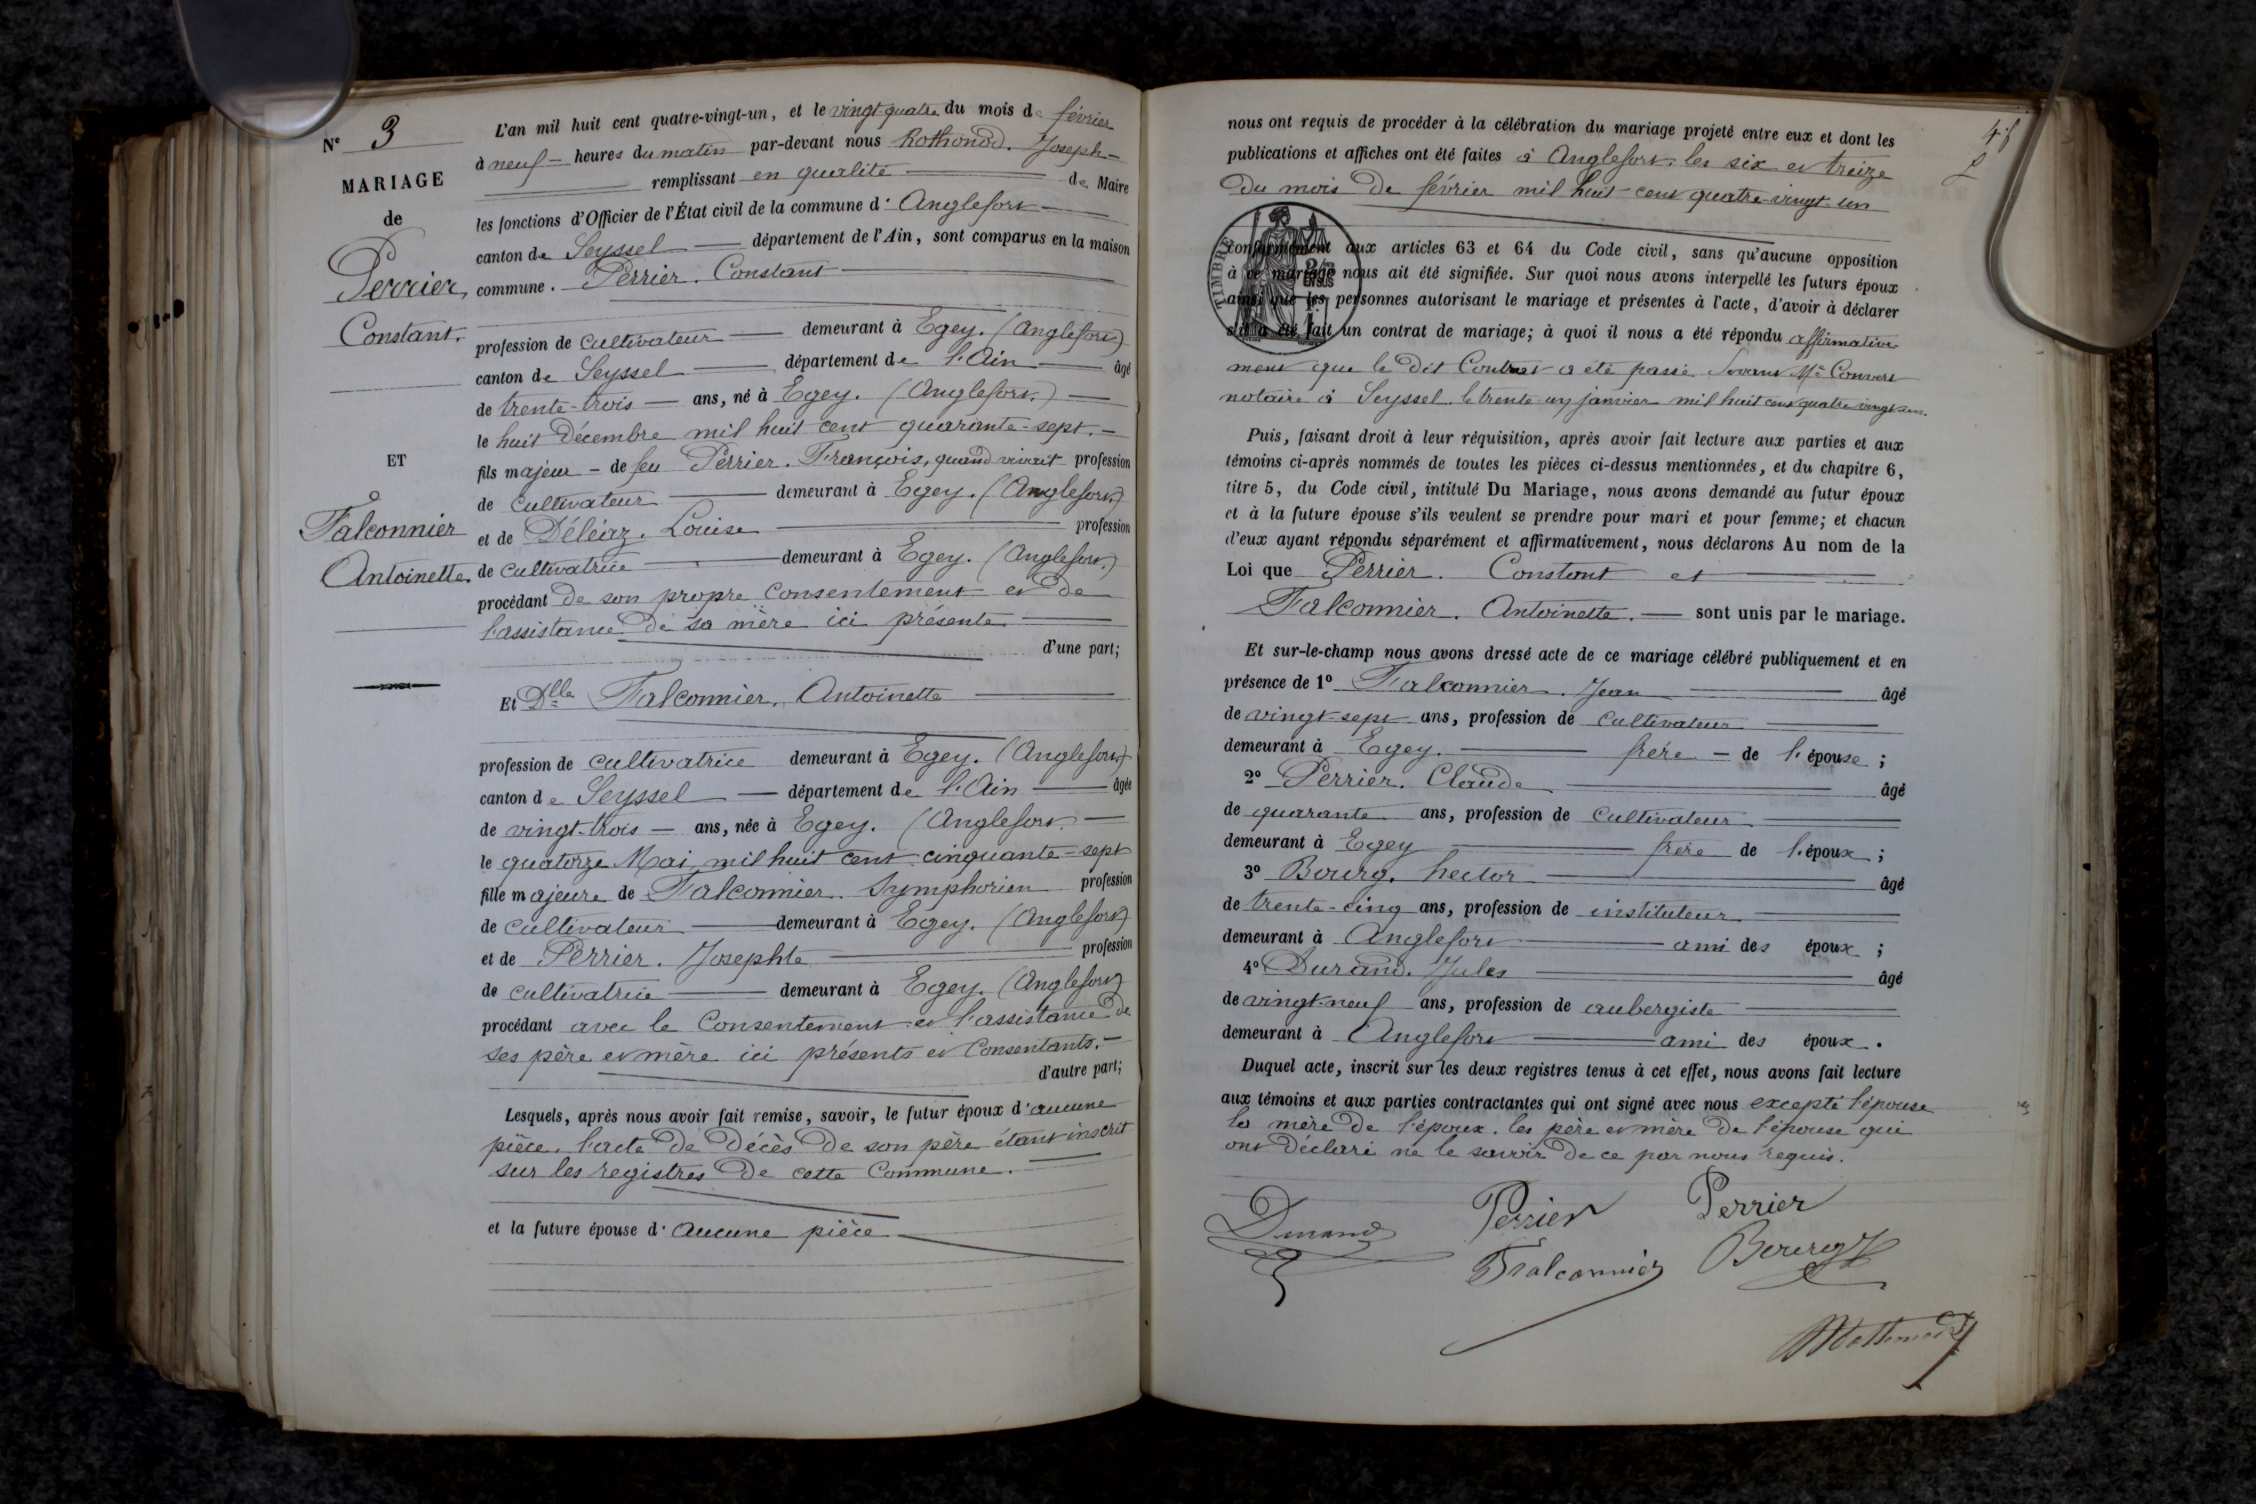 N° 3
MARIAGE
de
Perrier,
Constant.
ET
Falconnier
Antoinette.
L'an mil huit cent quatre-vingt-un, et le vingt quatre du mois de février
à neuf heures du matin par-devant nous Rothonod. Joseph
remplissant en qualité de Maire
les fonctions d'Officier de l'État civil de la commune d' Anglefort
canton de Seyssel département de l'Ain, sont comparus en la maison
commune. Perrier. Constant
profession de cultivateur demeurant à Egey. (Anglefort)
canton de Seyssel département de l'Ain âgé
de trente-trois ans, né à Egey. (Anglefort.)
le huit Décembre mil huit cent quarante-sept.
fils majeur de feu Perrier. François, quand vivait profession
de cultivateur demeurant à Egey. (Anglefort.)
et de Déléaz. Louise profession
de cultivatrice demeurant à Egey. (Anglefort.)
procédant de son propre consentement et de
l'assistance de sa mère ici présente
d'une part;
Et Dlle Falconnier. Antoinette
profession de cultivatrice demeurant à Egey. (Anglefort)
canton de Seyssel département de l'Ain âgée
de vingt-trois ans, née à Egey. (Anglefort.
le quatorze Mai mil huit cent cinquante-sept
fille majeure de Falconnier. Symphorien profession
de cultivateur demeurant à Egey. (Anglefort)
et de Perrier. Josephte profession
de cultivatrice demeurant à Egey. (Anglefort)
procédant avec le Consentement et l'assistance de
ses père et mère ici présents et Consentants.
d'autre part;
Lesquels, après nous avoir fait remise, savoir, le futur époux d'aucune
pièce, l'acte de décès de son père étant inscrit
sur les registres de cette Commune.
et la future épouse d'aucune pièce
nous ont requis de procéder à la célébration du mariage projeté entre eux et dont les
publications et affiches ont été faites à Anglefort. les six et treize
du mois de février mil huit cent quatre-vingt-un
TIMBRE
2/10
EN SUS
conformément aux articles 63 et 64 du Code civil, sans qu'aucune opposition
à ce mariage nous ait été signifiée. Sur quoi nous avons interpellé les futurs époux
ainsi que les personnes autorisant le mariage et présentes à l'acte, d'avoir à déclarer
s'il a été fait un contrat de mariage; à quoi il nous a été répondu affirmative
ment que le dit Contrat a été passé devant Me Convert
notaire à Seyssel. le trente un janvier mil huit cent quatre vingt un.
Puis, faisant droit à leur réquisition, après avoir fait lecture aux parties et aux
témoins ci-après nommés de toutes les pièces ci-dessus mentionnées, et du chapitre 6,
titre 5, du Code civil, intitulé Du Mariage, nous avons demandé au futur époux
et à la future épouse s'ils veulent se prendre pour mari et pour femme; et chacun
d'eux ayant répondu séparément et affirmativement, nous déclarons Au nom de la
Loi que Perrier. Constant et
Falconnier. Antoinette. sont unis par le mariage.
Et sur-le-champ nous avons dressé acte de ce mariage célébré publiquement et en
présence de 1° Falconnier. Jean âgé
de vingt-sept ans, profession de cultivateur
demeurant à Egey. frère de l'épouse;
2° Perrier. Claude âgé
de quarante ans, profession de cultivateur
demeurant à Egey frère de l'époux;
3° Bourg. hector âgé
de trente-cinq ans, profession de instituteur
demeurant à Anglefort ami des époux;
4° Durand. Jules âgé
de vingt-neuf ans, profession de aubergiste
demeurant à Anglefort ami des époux.
Duquel acte, inscrit sur les deux registres tenus à cet effet, nous avons fait lecture
aux témoins et aux parties contractantes qui ont signé avec nous excepté l'épouse
la mère de l'époux. les père et mère de l'épouse qui
ont déclaré ne le savoir de ce par nous requis.
Durand Perrier Perrier
Falconnier Bourg
Rothonod